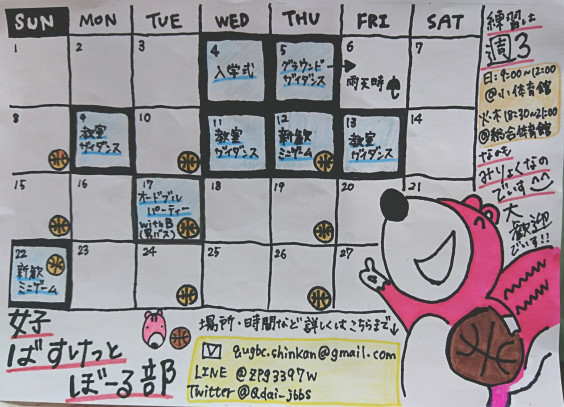 SUN MON TUE WED THU FRI SAT
1 2 3 4 5 6 7
入学式
グラウンド
ガイダンス
雨天時
8 9 10 11 12 13 14
教室
ガイダンス
教室
ガイダンス
新歓
ミニゲーム
教室
ガイダンス
15 16 17 18 19 20 21
オードブル
パーティー
with男
(男バス)
22 23 24 25 26 27
新歓
ミニゲーム
練習は
週3
日:9:00〜12:00
@小体育館
火・木18:30〜21:00
@総合体育館
なかも
みりょくなの
でいす
大
歓迎
でいす!!
女子
ばすけっと
ぼーる部
場所・時間など詳しくはこちらまで↓
qugbc.shinkan@gmail.com
LINE @zpg3397w
Twitter@Qdai-jbbs